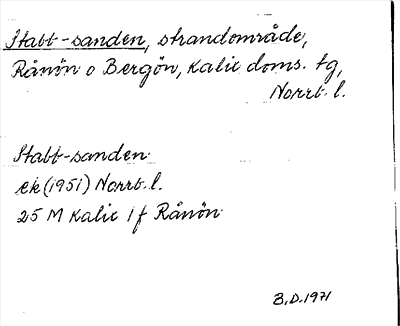 Stabb-sanden, strandområde,
Rånön o Bergön, Kalix doms. tg,
Norrb. l.
Stabb-sanden
ek (1951) Norrb. l.
25 M Kalix 1f Rånön
B.D. 1971